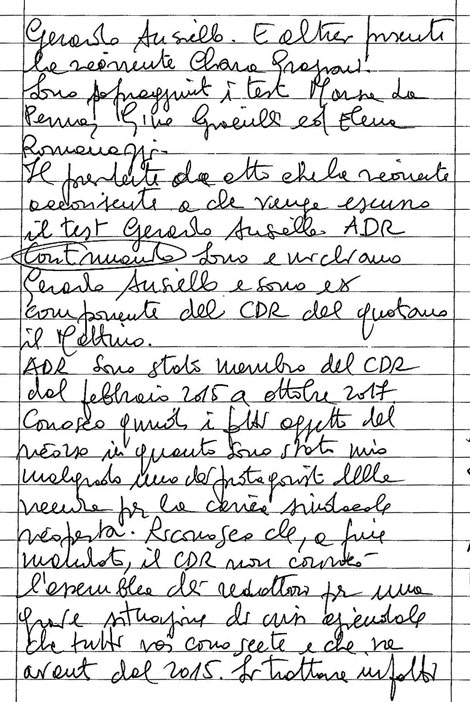 Gerardo Ausiello. È altresì presente
la ricorrente Chiara Graziani.
Sono sopraggiunti i test Marisa La
Penna, Gino Giaculli ed Elena
Romanazzi.
Il presidente dà atto che la ricorrente
acconsente a che venga escusso
il test Gerardo Ausiello. ADR
Continuando Sono e mi chiamo
Gerardo Ausiello e sono ex
componente del CDR del quotidiano
il Mattino.
ADR Sono stato membro del CDR
dal febbraio 2015 a ottobre 2017.
Conosco quindi i fatti oggetto del
ricorso in quanto sono stato mio
malgrado uno dei protagonisti della
vicenda per la carica sindacale
ricoperta. Riconosco che, a fine
mandato, il CDR non convocò
l'assemblea dei redattori per una
grave situazione di crisi aziendale
che tutti voi conoscete e che va
avanti dal 2015. Si trattava infatti